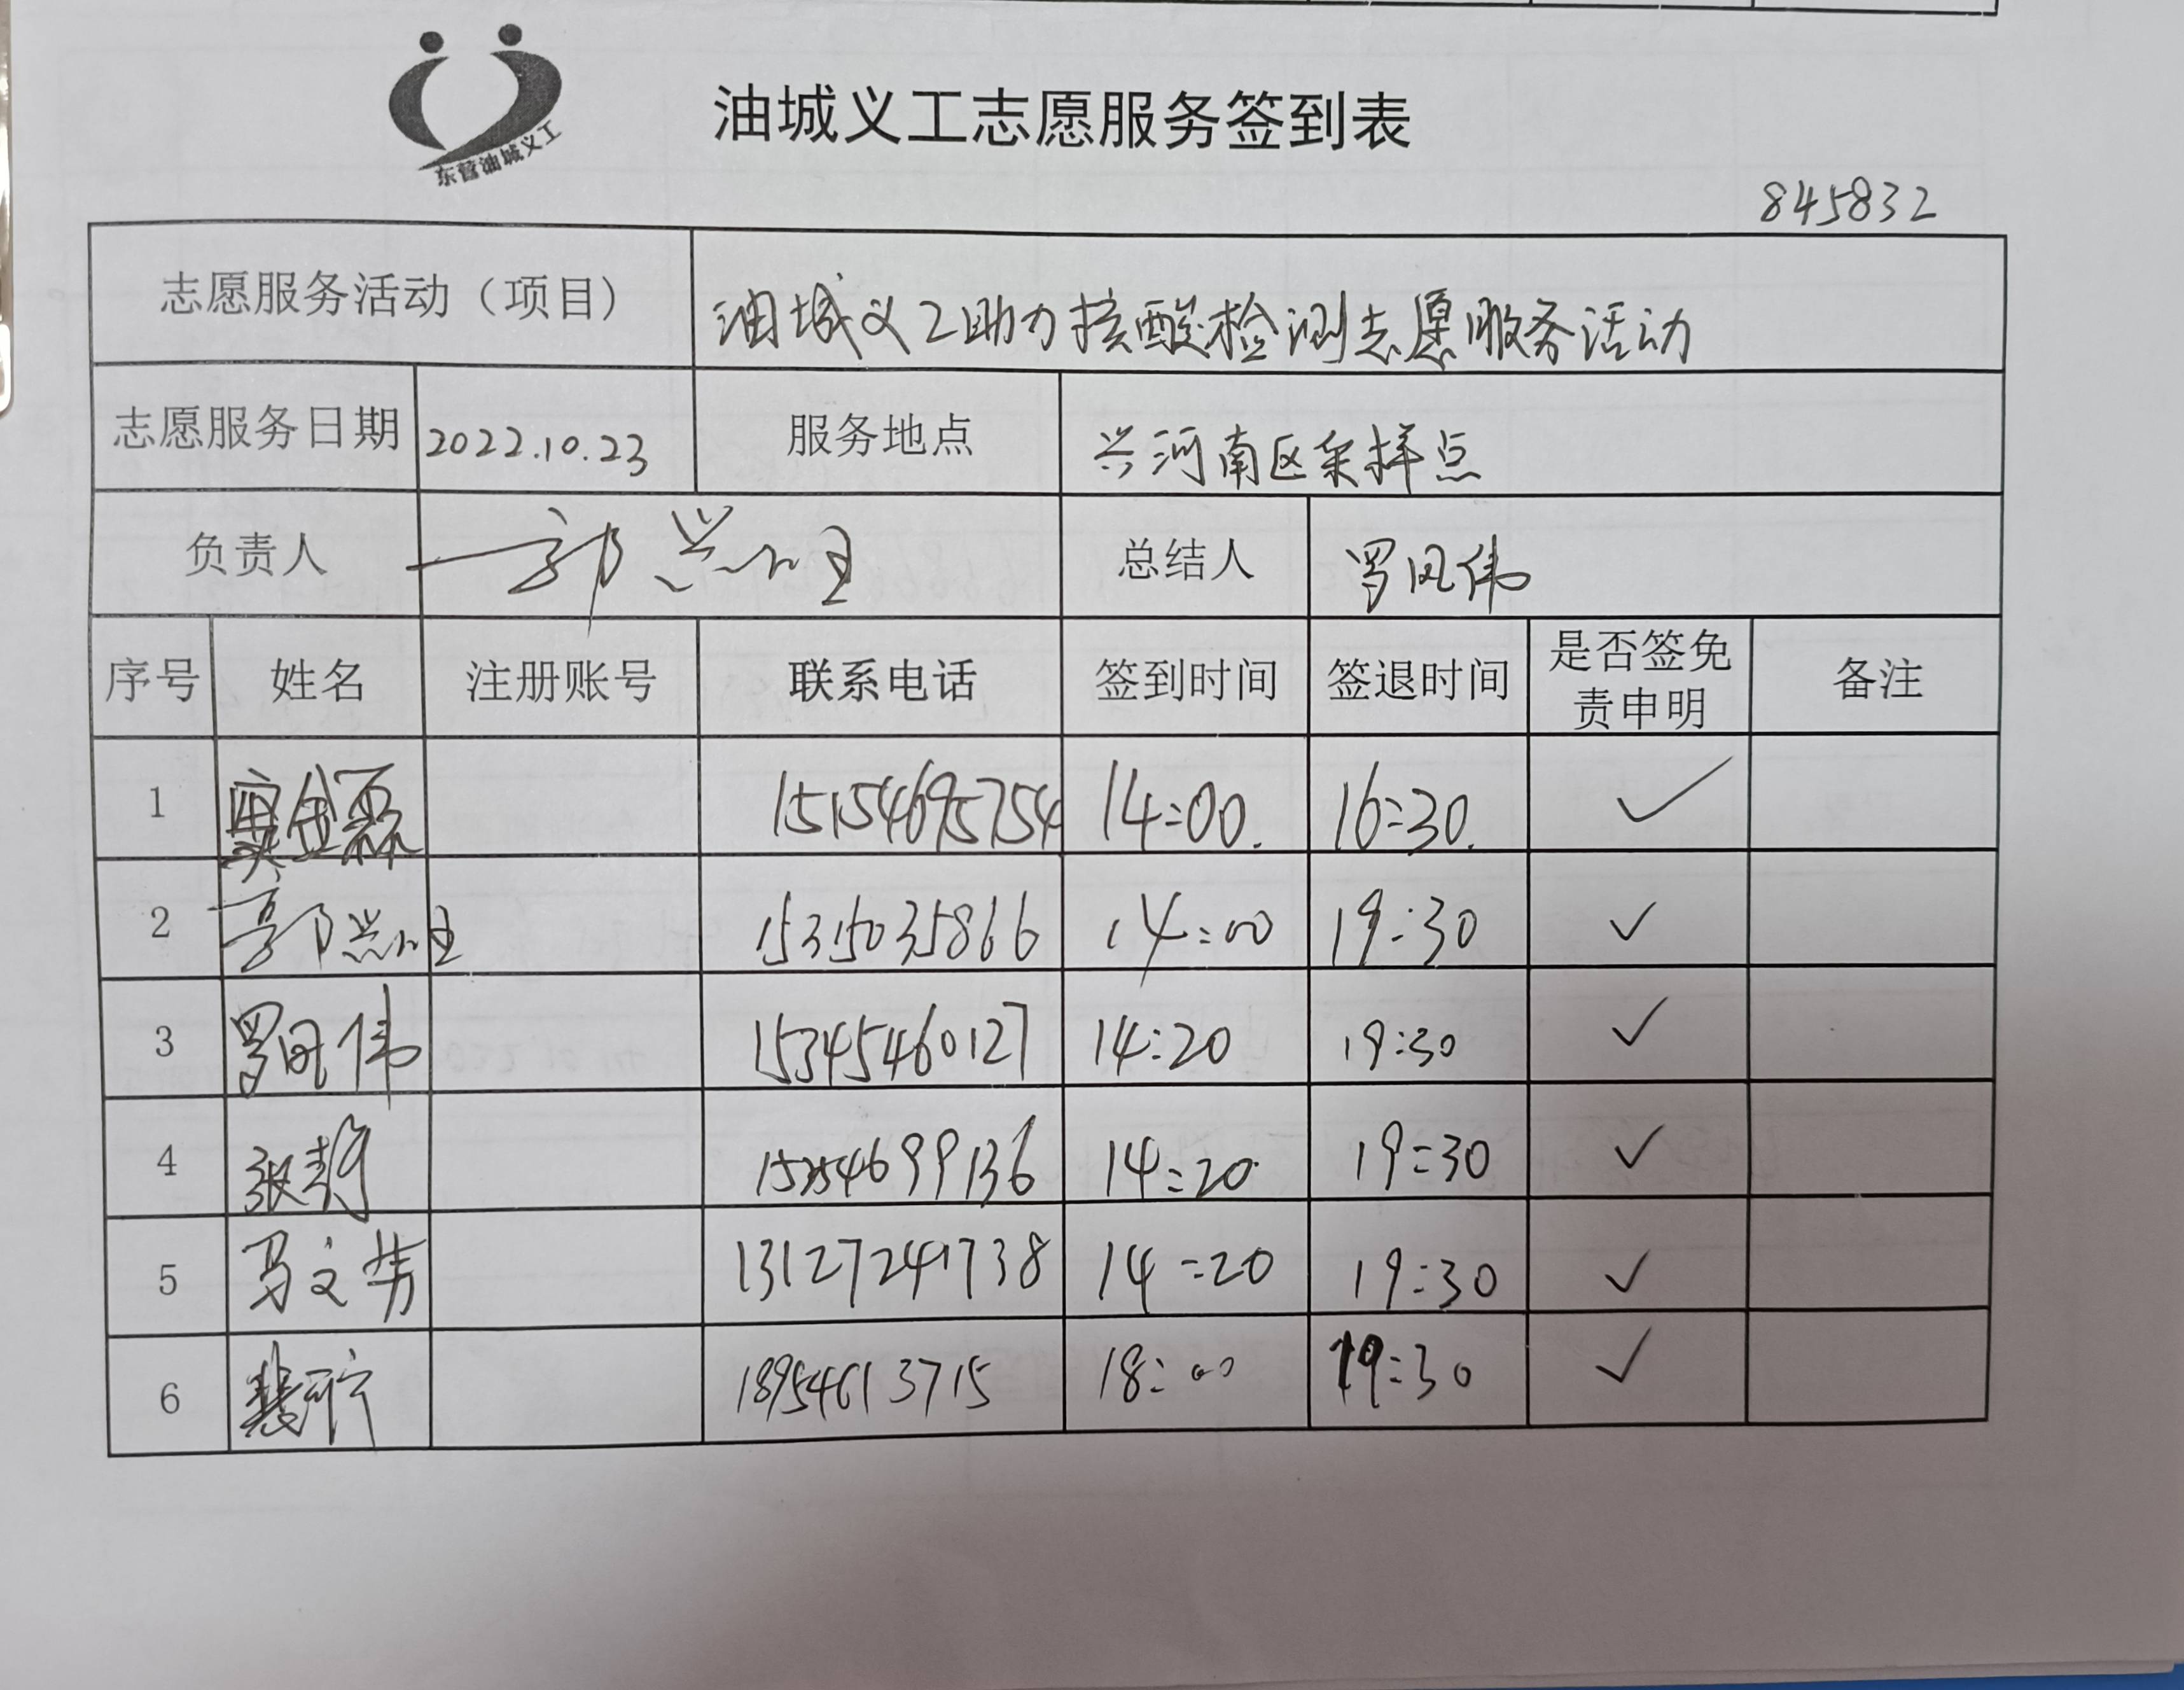 东营油城义工
油城义工志愿服务签到表
845832
志愿服务活动（项目） 油城义工助力核酸检测志愿服务活动
志愿服务日期 2022.10.23 服务地点 兴河南区采样点
负责人 郭兴 总结人 罗凤伟
序号 姓名 注册账号 联系电话 签到时间 签退时间 是否签免责申明 备注
1 窦金霖 15154695754 14:00. 16:30. ✓
2 郭兴 15315035866 14:00 19:30 ✓
3 罗凤伟 15345460127 14:20 19:30 ✓
4 张静 14:20 19:30 ✓
5 马文芳 13127241738 14:20 19:30 ✓
6 18954613715 18:00 19:30 ✓